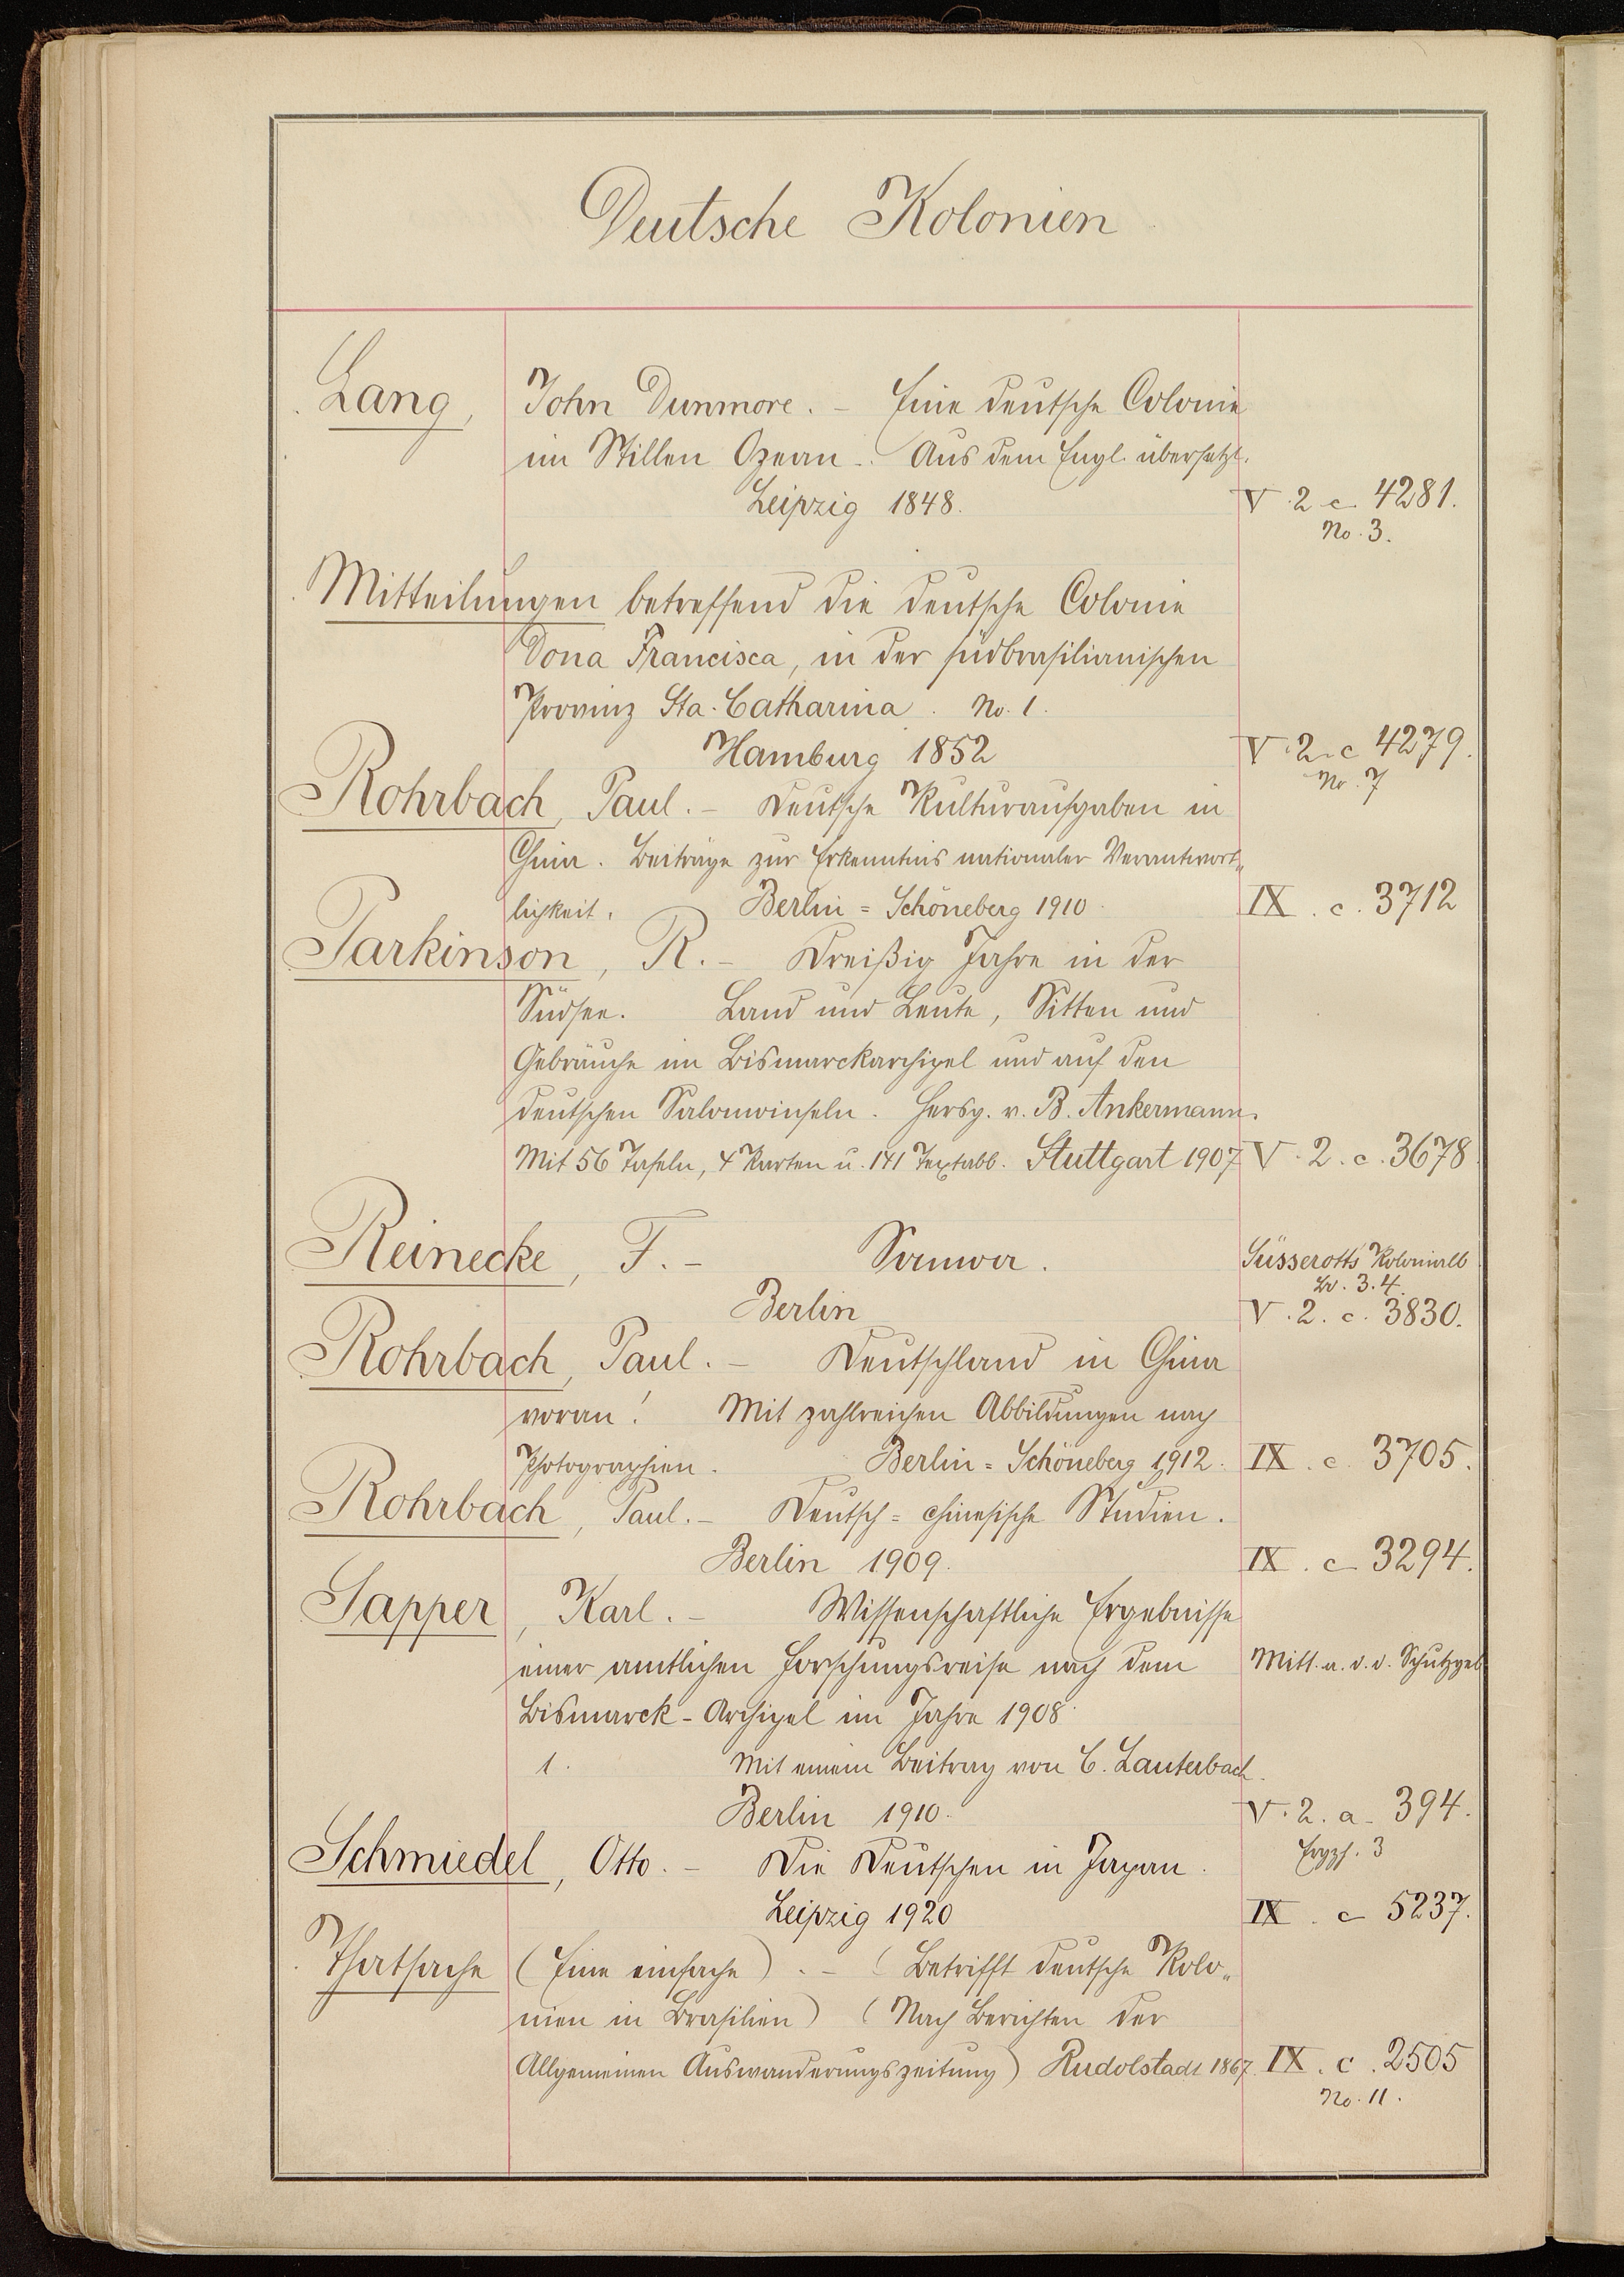 Deutsche Kolonien
Lang, John Dunmore. – Eine deutsche Colonie
im Stillen Ozean. – Aus dem Engl. übersetzt.
Leipzig 1848. V. 2 c. 4281.
No. 3.
Mitteilungen betreffend die deutsche Colonie
Dona Francisca, in der südbrasilianischen
Provinz Sta. Catharina. No. 1.
Hamburg 1852 V. 2. c 4279.
No. 7
Rohrbach, Paul. – Deutsche Kulturaufgaben in
China. Beiträge zur Erkenntnis nationaler Verantwort„
lichkeit. Berlin = Schöneberg 1910. IX. c. 3712
Parkinson, R. – Dreißig Jahre in der
Südsee. Land und Leute, Sitten und
Gebräuche im Bismarckarchipel und auf den
deutschen Salomoinseln. Hersg. v. B. Ankermann.
Mit 56 Tafeln, 4 Karten u. 141 Textabb. Stuttgart 1907 V. 2. c. 3678.
Reinecke, F. – Samoa. Süsserotts Kolonialb
Bd. 3.4.
Berlin V. 2. c. 3830.
Rohrbach, Paul. – Deutschland in China
voran! Mit zahlreichen Abbildungen nach
Photographien. Berlin = Schöneberg 1912. IX. c. 3705.
Rohrbach, Paul. – Deutsch = chinesische Studien.
Berlin 1909. IX. c 3294.
Sapper, Karl. – Wissenschaftliche Ergebnisse
einer amtlichen Forschungsreise nach dem Mitt. a. d. d. Schutzgeb
Bismarck – Archipel im Jahre 1908.
1. Mit einem Beitrag von C. Lauterbach.
Berlin 1910. V. 2. a. 394.
Ergzh. 3
Schmiedel, Otto. – Die Deutschen in Japan.
Leipzig 1920 IX. c 5237.
Thatsache (Eine einfache). – (Betrifft deutsche Kolo„
nien in Brasilien) (Nach Berichten der
Allgemeinen Auswanderungszeitung) Rudolstadt 1867. IX. c. 2505
No. 11.